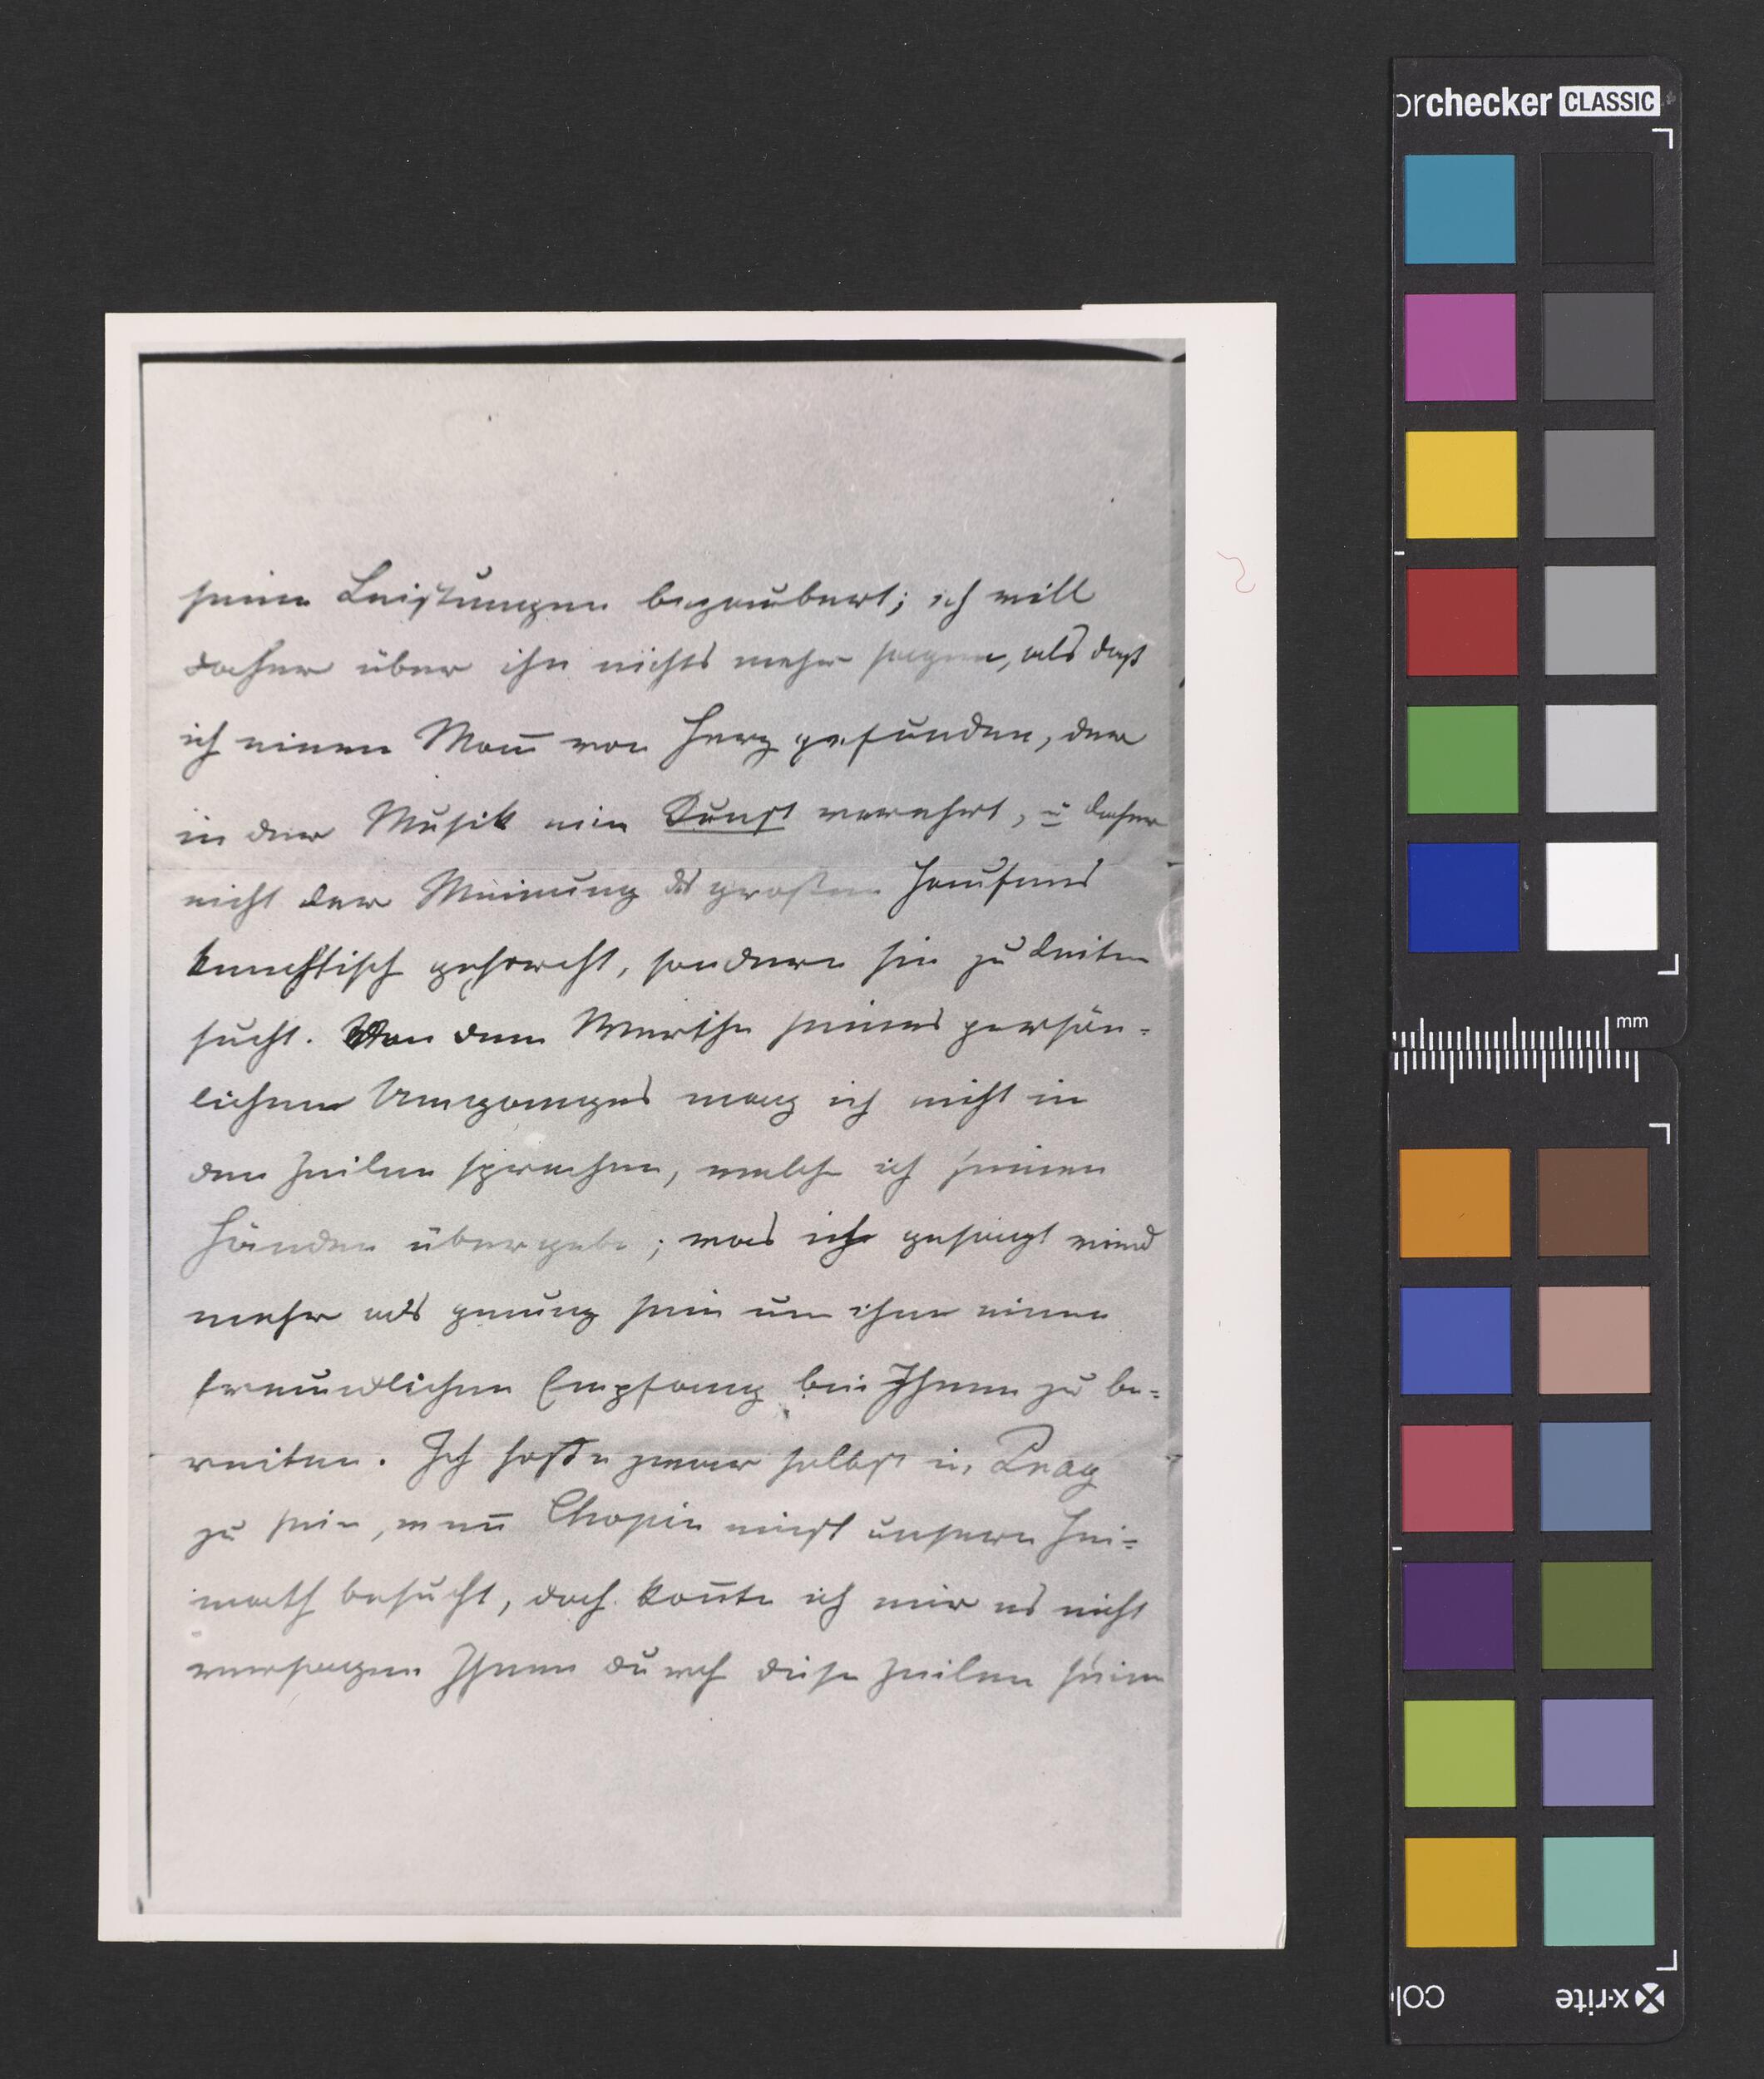 orchecker CLASSIC
seine Leistungen bezaubert; ich will
daher über ihn nichts mehr sagen, als daß
ich einen Mañ von Herz gefunden, der
in der Musik eine Kunst verehrt, u daher
nicht der Meinung des großen Haufens
knechtisch gehorcht, sondern sie zu leiten
sucht. Von dem Werthe seines persön-
lichen Umganges mag ich nicht in
den Zeilen sprechen, welche ich seinen
Händen übergebe; was ich gesagt wird
mehr als genung sein um ihm einen
freundlichen Empfang bei Ihnen zu be-
reiten. Ich hoffe zwar selbst in Prag
zu sein, weñ Chopin einst unsere Hei-
math besucht, doch koñte ich mir es nicht
versagen Ihnen durch diese Zeilen seine
mm
x-rite
col